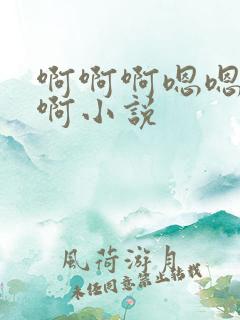 啊啊啊嗯嗯
啊小说
風荷游月
未经同意禁止转载